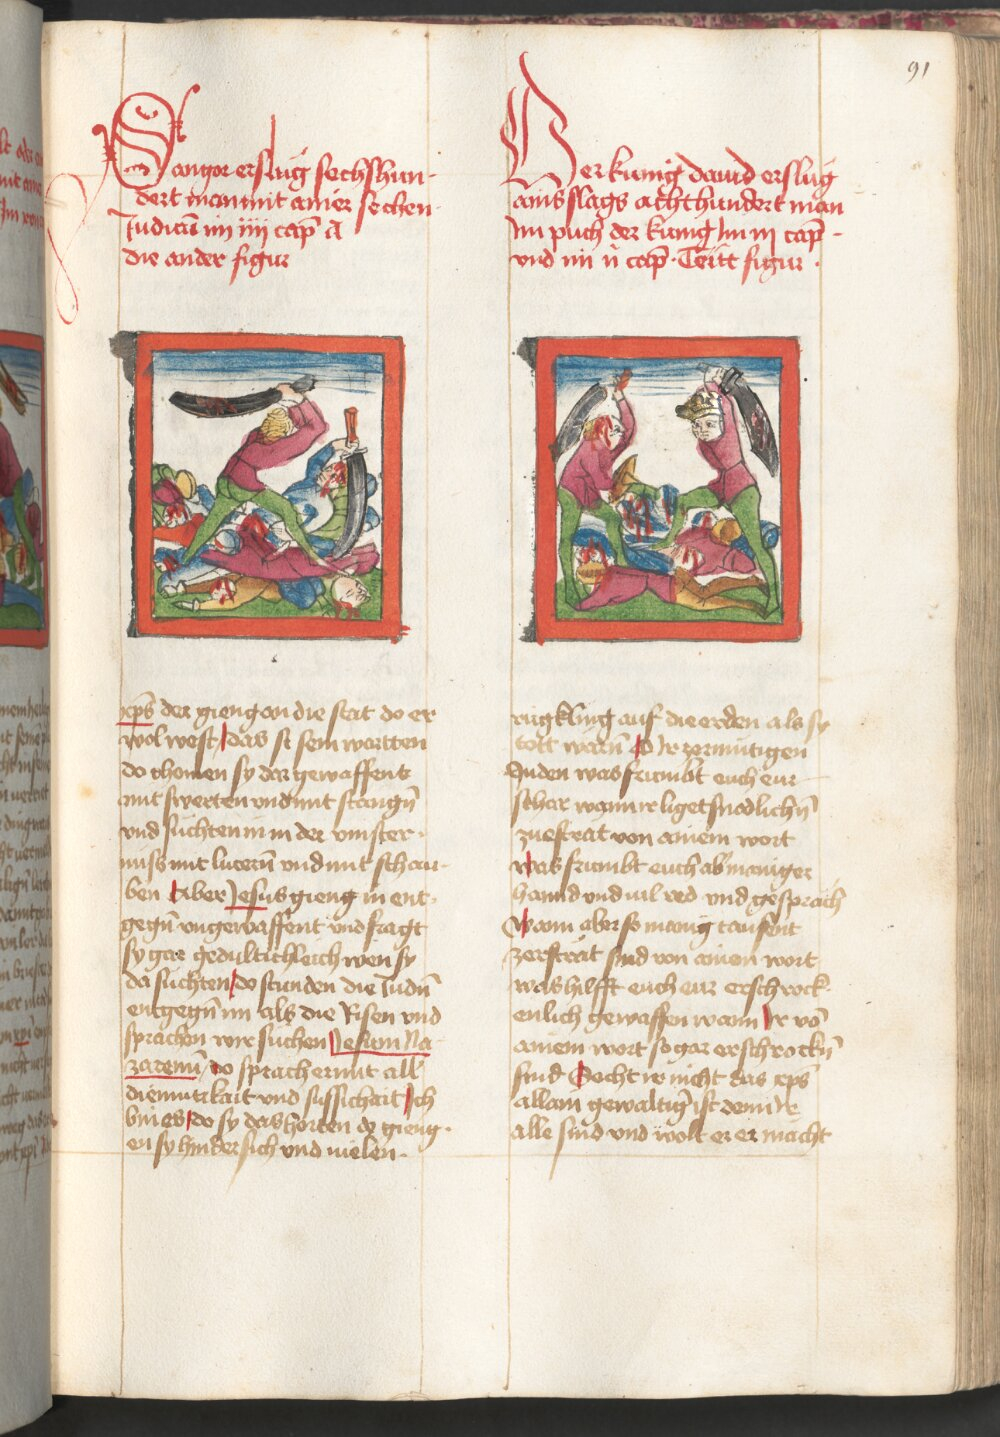 91
Sangor erslug sechshun-
dert man mit ainer sechen
Judicũ im iiij cap̃ A
die ander figur
Der kunig dauid erslug
ains slags achthundert man
im puch der kunig im iij cap̃ -
vnd im ii cap̃ · Teitt figur ·
xp̃s der gieng an die stat do er
wol west / das si sein wartten
do chomen sy dar gewaffent
mit swerten vnd mit stangñ
vnd suchten in in der vinster-
niss mit lucerñ vnd mit schau-
ben Aber Jesus gieng in ent-
gegñ vngewaffent vnd fragt
sy gar gedultichleich wen sy
da suchten / do stunden die Judñ
entgegñ im als die Risen vnd
sprachen wir suchen Jesum Na-
zarenũ / do sprach er mit all̃
diemutikait vnd sussichait Ich
bin es / do sy das horten do gieng-
en sy hindersich vnd vielen -
rugkling auf die erden als sy
tott warñ O Ir zermutigen
Juden was frumbt euch eur
schar wann ir liget snodlichñ
zuestrat von ainem wort
was frumbt euch ab maniger
hannd vnd vil red vnd gesprach
Wann aber so manig tausent
zerstrat sind von ainem wort
was hilfft euch eur erschrock-
enlich gewaffen wann Ir võ
ainem wort so gar erschrockñ
sind Secht ir nicht das xp̃s
allain gewaltig̃ ist denn Ir
alle sind vnd wolt er er macht